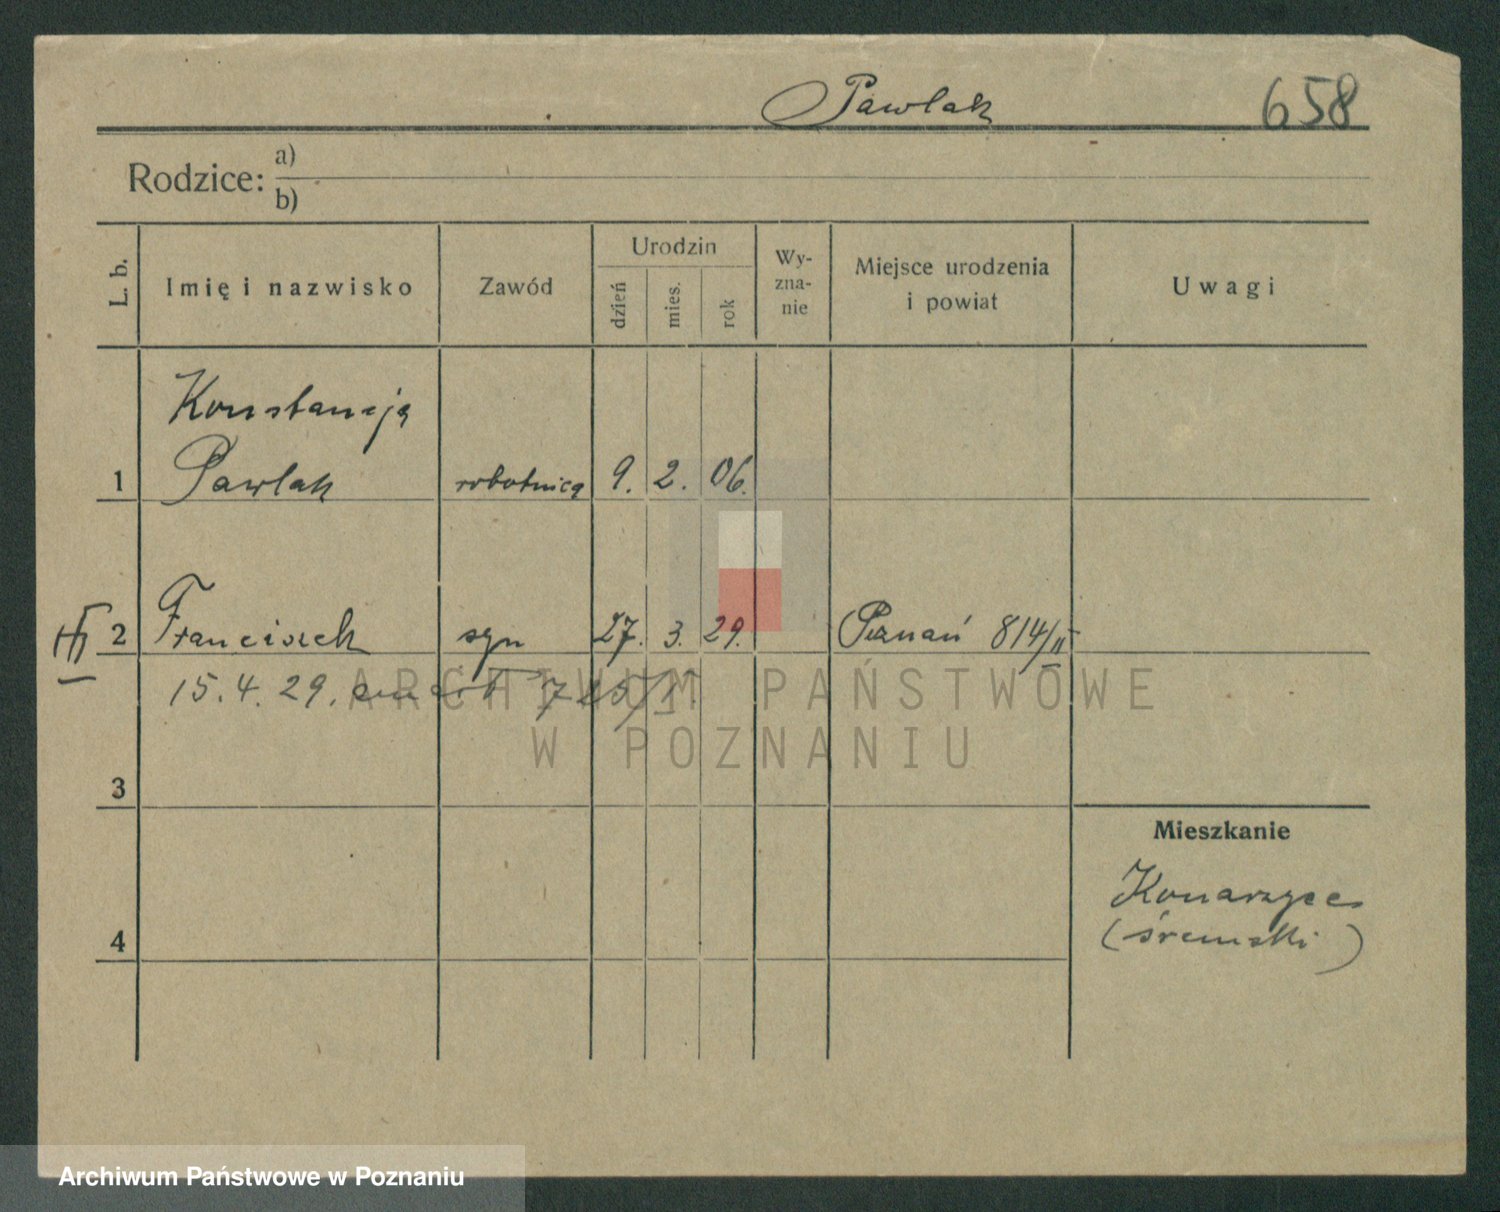 Pawlak 658
Rodzice: a)
b)
L. b.
Imię i nazwisko
Zawód
Urodzin
dzień
mies.
rok
Wy-
zna-
nie
Miejsce urodzenia
i powiat
Uwagi
Konstancja
1 Pawlak robotnica 9. 2. 06.
2 Franciszek syn 27. 3. 29. Poznań 814/II
15. 4. 29. 725/II.
3
4
Mieszkanie
Konarzyce
(śremski)
ARCHIWUM PAŃSTWOWE
W POZNANIU
Archiwum Państwowe w Poznaniu